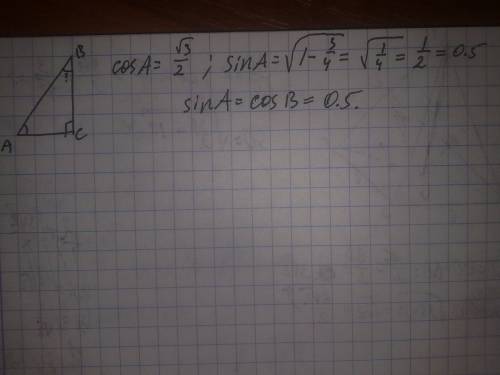 B
cosA = √3/2 ; sinA = √(1 - 3/4) = √(1/4) = 1/2 = 0.5
sinA = cosB = 0.5.
A C